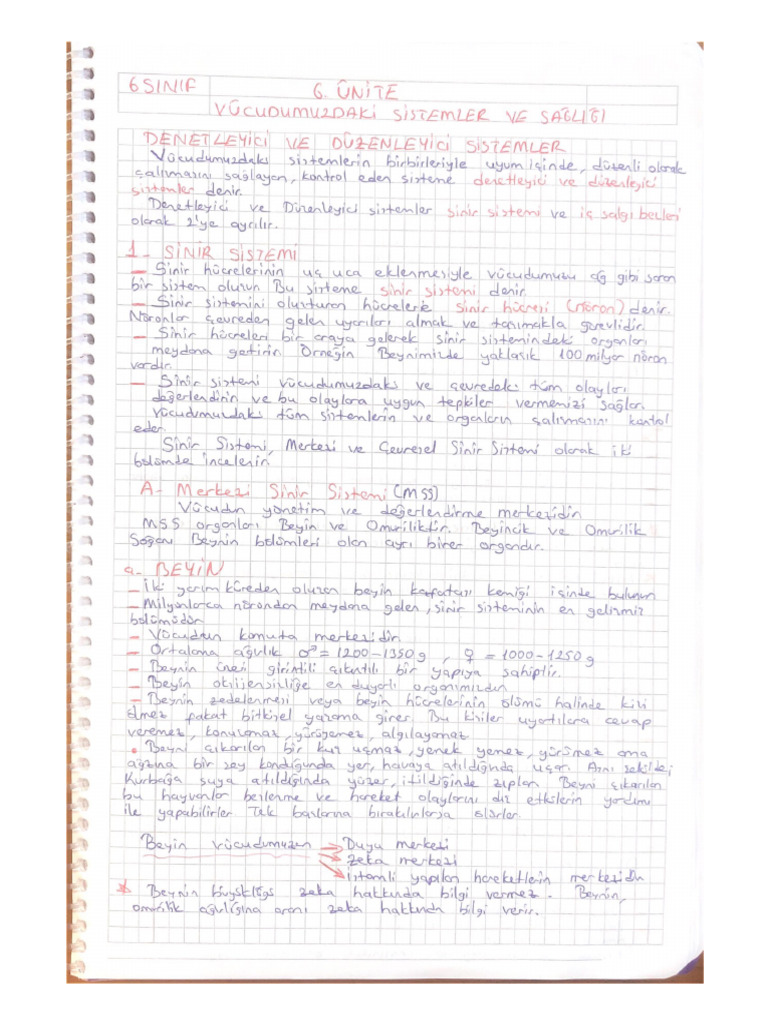 6 SINIF
6. ÜNİTE
VÜCUDUMUZDAKİ SİSTEMLER VE SAĞLIĞI
DENETLEYİCİ VE DÜZENLEYİCİ SİSTEMLER
Vücudumuzdaki sistemlerin birbirleriyle uyum içinde, düzenli olarak
çalışmasını sağlayan, kontrol eden sisteme denetleyici ve düzenleyici
sistemler denir.
Denetleyici ve Düzenleyici sistemler sinir sistemi ve iç salgı bezleri
olarak 2'ye ayrılır.
1- SİNİR SİSTEMİ
- Sinir hücrelerinin uç uca eklenmesiyle vücudumuzu ağ gibi saran
bir sistem oluşur. Bu sisteme sinir sistemi denir.
- Sinir sistemini oluşturan hücrelere sinir hücresi (nöron) denir.
Nöronlar çevreden gelen uyarıları almak ve tanımakla görevlidir.
- Sinir hücreleri bir araya gelerek sinir sistemindeki organları
meydana getirir. Örneğin Beynimizde yaklaşık 100 milyar nöron
vardır.
- Sinir sistemi vücudumuzdaki ve çevredeki tüm olayları
değerlendirir ve bu olaylara uygun tepkiler vermenizi sağlar.
Vücudumuzdaki tüm sistemlerin ve organların çalışmasını kontrol
eder.
Sinir Sistemi, Merkezi ve Çevresel Sinir Sistemi olarak iki
bölümde incelenir.
A- Merkezi Sinir Sistemi (MSS)
Vücudun yönetim ve değerlendirme merkezidir.
MSS organları Beyin ve Omuriliktir. Beyincik ve Omurilik
Soğanı Beynin bölümleri olan ayrı birer organdır.
a- BEYİN
- İki yarım küreden oluşan beyin kafatası kemiği içinde bulunur.
- Milyonlarca nörondan meydana gelen, sinir sisteminin en gelişmiş
bölümüdür.
- Vücudun komuta merkezidir.
- Ortalama ağırlık ♂ = 1200-1350 g , ♀ = 1000-1250 g
- Beynin üzeri girintili çıkıntılı bir yapıya sahiptir.
- Beyin oksijensizliğe en duyarlı organımızdır.
- Beynin zedelenmesi veya beyin hücrelerinin ölümü halinde kişi
ölmez fakat bitkisel yaşama girer. Bu kişiler uyartılara cevap
veremez, konuşamaz, yürüyemez, algılayamaz.
• Beyni çıkarılan bir kuş uçmaz, yemek yemez, yürümez ama
ağzına bir şey konduğunda yer, havaya atıldığında uçar. Aynı şekilde;
Kurbağa suya atıldığında yüzer, itildiğinde zıplar. Beyni çıkarılan
bu hayvanlar beslenme ve hareket olaylarını dış etkilerin yardımı
ile yapabilirler. Tek başlarına bırakılırlarsa ölürler.
Beyin vücudumuzun → Duyu merkezi
→ Zeka merkezi
→ İstemli yapılan hareketlerin merkezidir.
* Beynin büyüklüğü zeka hakkında bilgi vermez. Beynin,
omurilik ağırlığına oranı zeka hakkında bilgi verir.